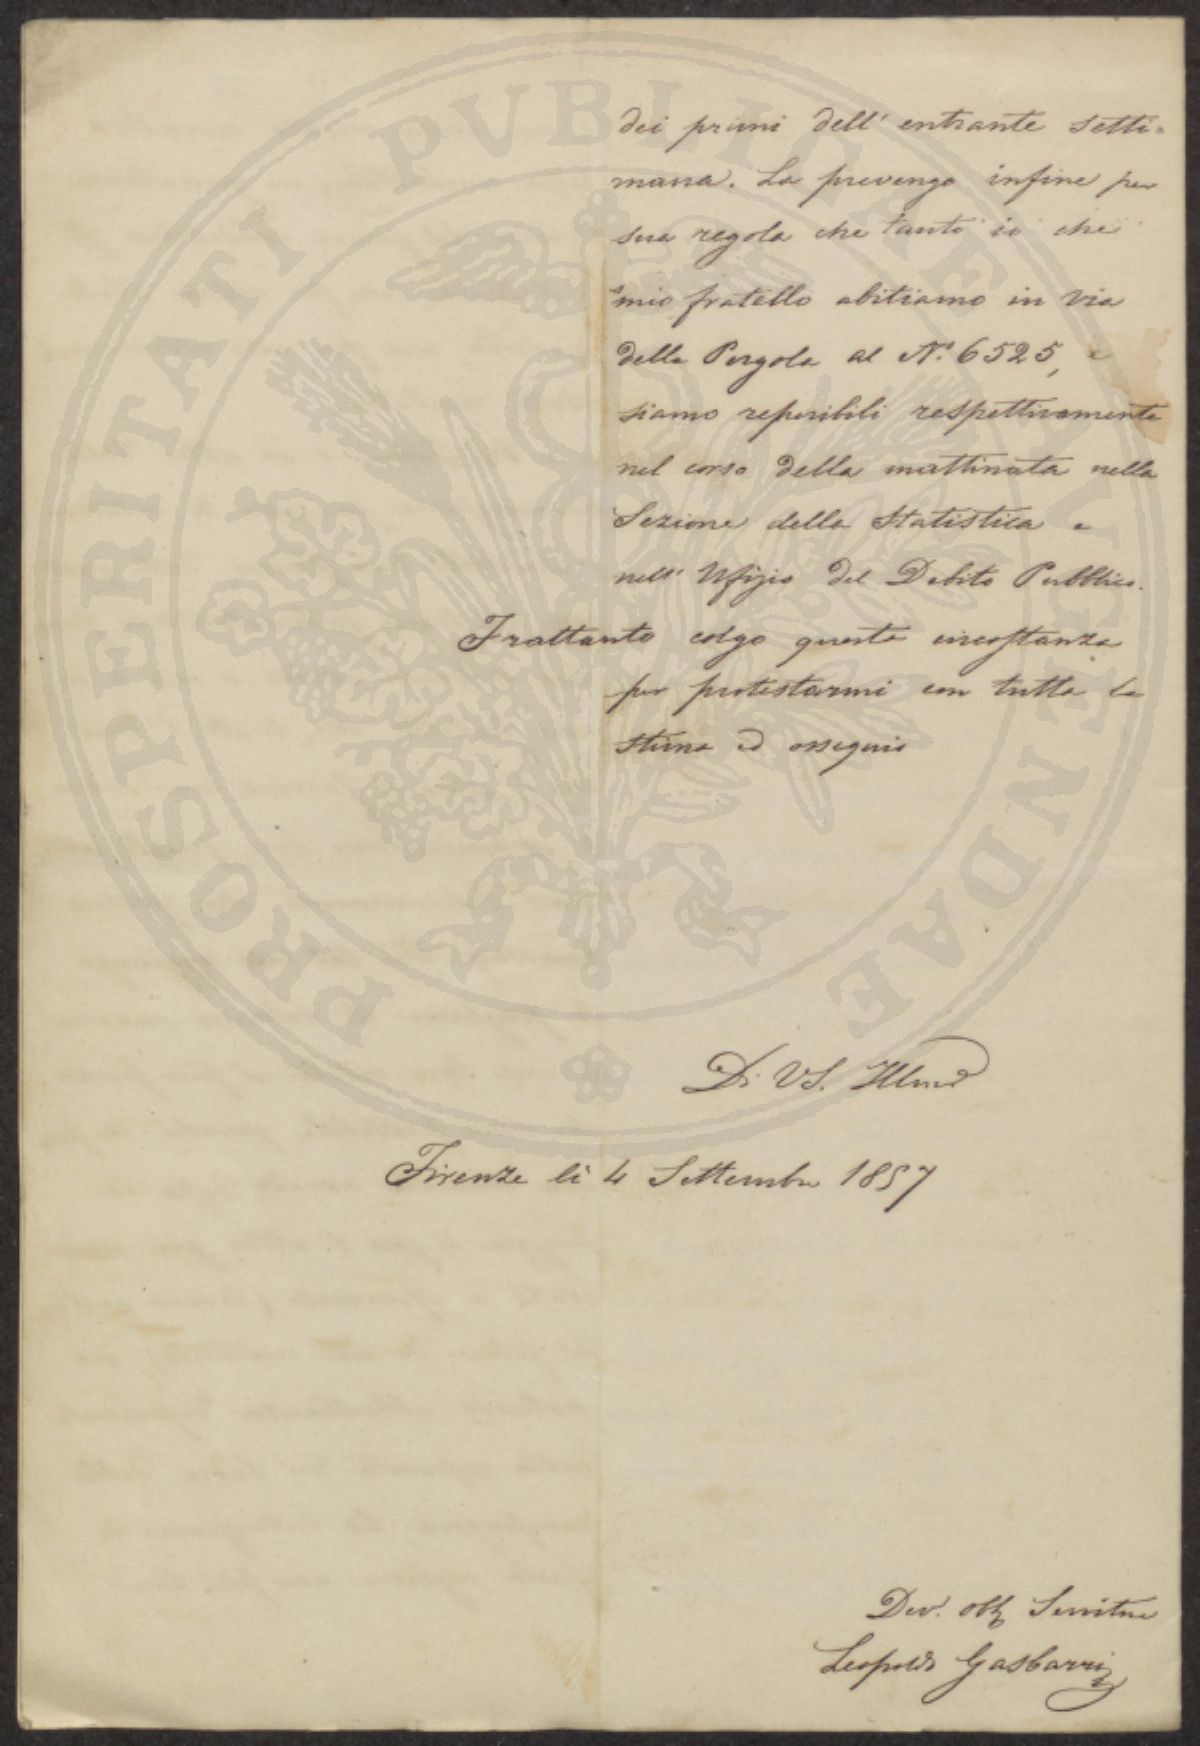 dei primi dell' entrante setti=
mana. La prevengo infine per
sua regola che tanto io che
mio fratello abitiamo in Via
della Pergola al N.º 6525, e
siamo reperibili respettivamente
nel corso della mattinata nella
Sezione della Statistica e
nell' Ufizio del Debito Pubblico.
Frattanto colgo questa circostanza
per protestarmi con tutta la
stima ed ossequio
Di VS. Illma
Firenze li 4 Settembre 1857
Dev. obb Servitore
Leopoldo Gasbarri
PROSPERITATI PVBLICAE AVGENDAE